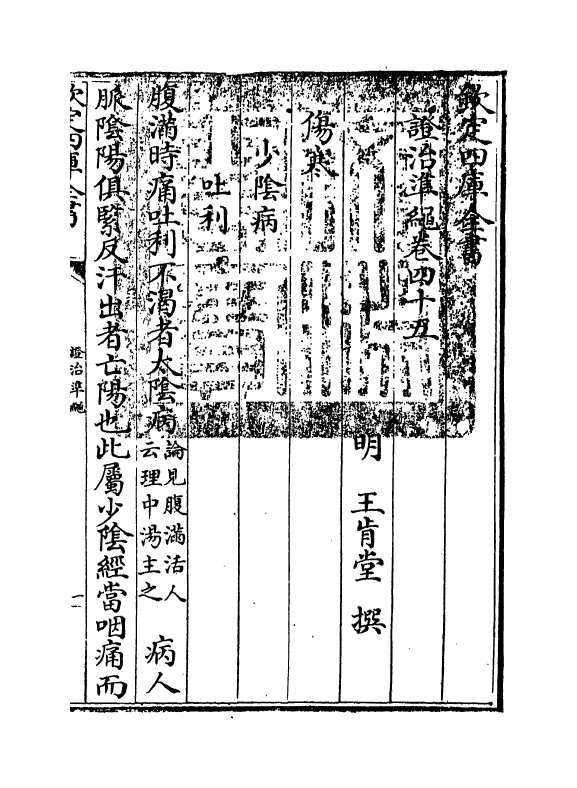 欽定四庫全書
證治準繩卷四十五
明 王肯堂 撰
傷寒
少陰病
吐利
腹滿時痛吐利不渴者太陰病論見腹滿活人云理中湯主之 病人
脈陰陽俱緊反汗出者亡陽也此屬少陰經當咽痛而
欽定四庫全書
證治準繩
一